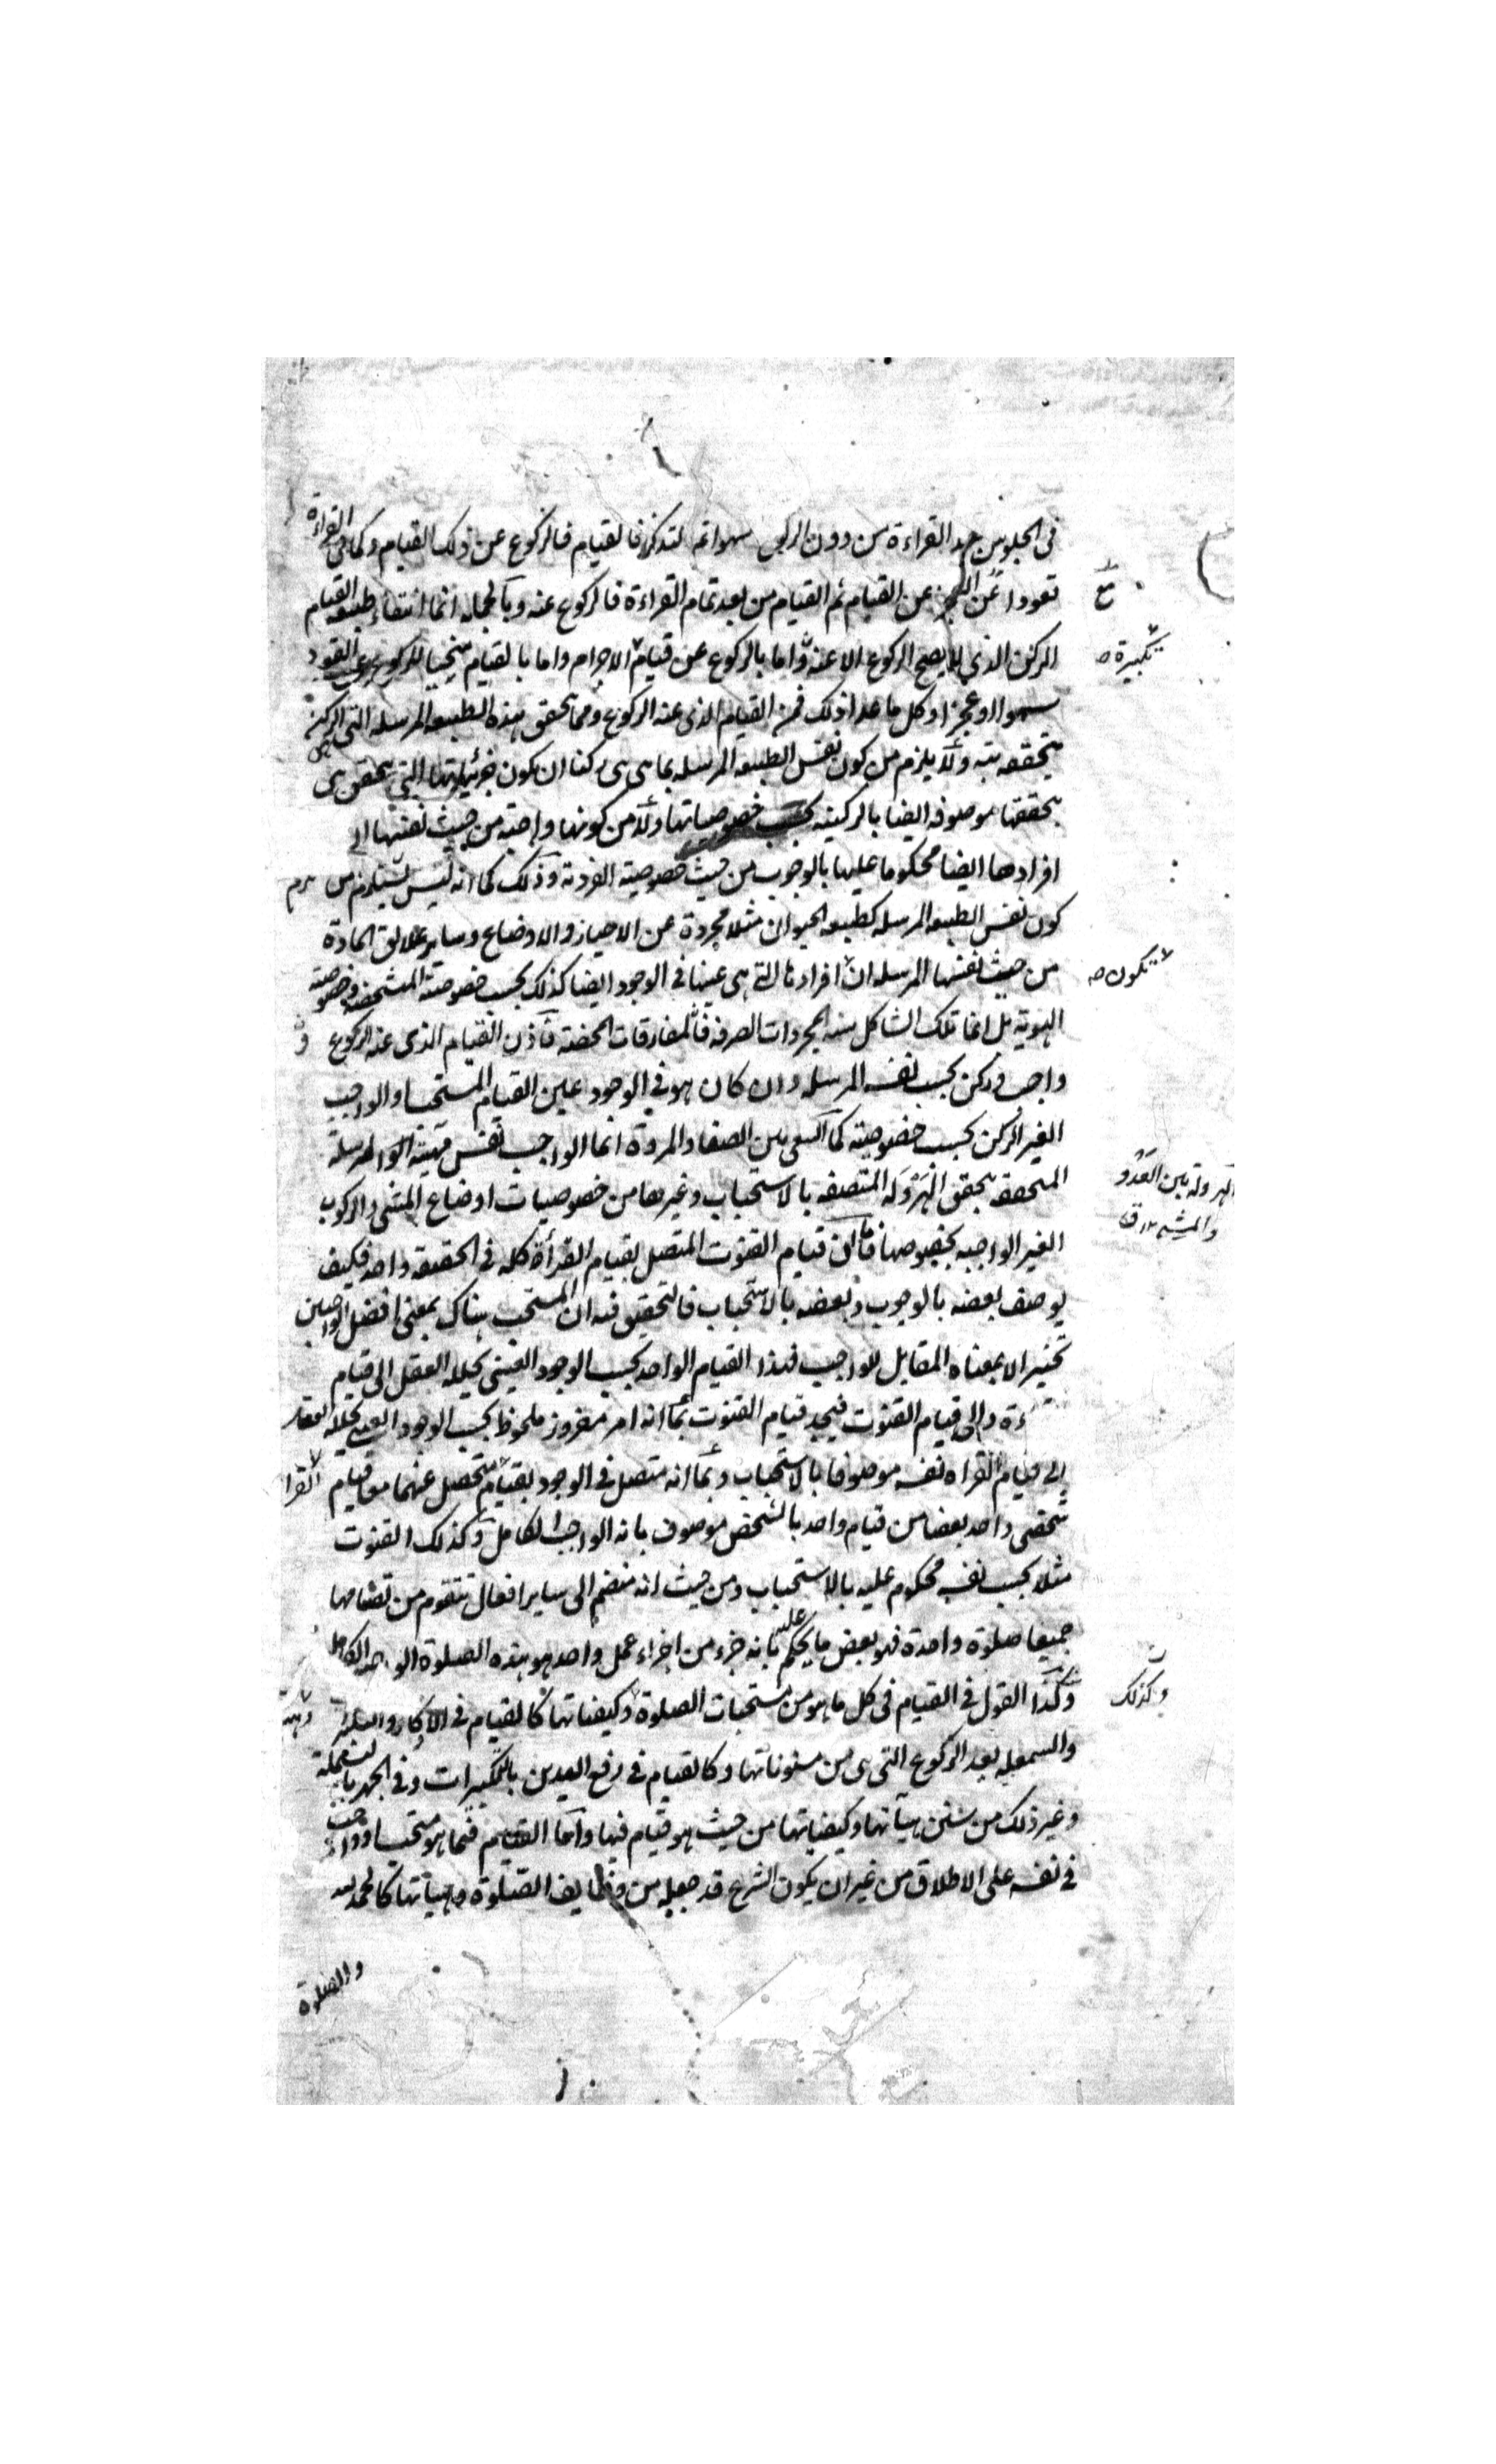 في الجلوس بعد القراءة من دون الركوع سهوا ثم لتذكر فالقيام فالركوع عن ذلك القيام وكما في القراءة
قعودا عن العجز عن القيام ثم القيام من بعد تمام القراءة فالركوع عنه وبالجملة انما انتفاء طبيعة القيام
الركن الذي لا يصح الركوع الا عنه واما بالركوع عن قيام الاحرام واما بالقيام منحنيا للركوع عن القعود
سهوا او عجزا وكل ما عدا ذلك فمن القيام الذي عنه الركوع ومما تحقق هذه الطبيعة المرسلة التي الركن
بتحققه بتة ولا يلزم من كون نفس الطبيعة المرسلة بما هي هي ركنا ان يكون جزئياتها التي تحقق هي
بتحققها موصوفة ايضا بالركنية بحسب خصوصياتها ولا من كونها واجبة من حيث نفسها
افرادها ايضا محكوما عليها بالوجوب من حيث خصوصية الفردية وذلك كما انه ليس يستلزم من
كون نفس الطبيعة المرسلة كطبيعة الحيوان مثلا مجردة عن الاحياز والاوضاع وساير علايق المادة
من حيث نفسها المرسلة ان افرادها التي هي عينها في الوجود ايضا كذلك بحسب خصوصية المشخصة وخصوصية
الهوية بل انما تلك الشاكلة سنة المجردات الصرفة فالمفارقات المحضة فاذن القيام الذي عنه الركوع
واجب وركن بحسب نفسه المرسلة وان كان هو في الوجود عين القيام المستحب او الواجب
الغير الركن بحسب خصوصيته كما السعى بين الصفا والمروة انما الواجب نفس مهيته المرسلة
المتحققة بتحقق الهرولة المتصفة بالاستحباب وغيرها من خصوصيات اوضاع المشى والركوب
الغير الواجبة بخصوصها فاما ان قيام القنوت المتصل بقيام القرأة كله في الحقيقة واحد فكيف
يوصف بعضه بالوجوب وبعضه بالاستحباب فالتحقيق فيه ان المستحب هناك بمعنى افضل الواجبين
تخييرا لا بمعناه المقابل للواجب فهذا القيام الواحد بحسب الوجود العيني يحيله العقل الى قيام
ءة والى قيام القنوت فيجد قيام القنوت بما انه امر مفروز ملحوظ بحسب الوجود
الى قيام القراة نفسه موصوفا بالاستحباب وبما انه متصل في الوجود بقيام متحصل عنهما معا قيام
شخصي واحد بعضا من قيام واحد بالشخص موصوف بانه الواجب الكامل وكذلك القنوت
مثلا بحسب نفسه محكوم عليه بالاستحباب ومن حيث انه منضم الى ساير افعال تتقوم من تضامها
جميعا صلوة واحدة فهو بعض ما يحكم عليه بانه جزء من اجزاء عمل واحد هو هذه الصلوة الواحدة الكاملة
وكذا القول في القيام في كل ما هو من مستحبات الصلوة وكيفياتها كالقيام في الاذكار
والسمعلة بعد الركوع التي هي من مسنوناتها وكالقيام في رفع اليدين بالتكبيرات وفي الجهر بالبسملة
وغير ذلك من سنن هيآتها وكيفياتها من حيث هو قيام فيها واما القيام فيما هو مستحب او واجب
في نفسه على الاطلاق من غير ان يكون الشرع قد جعله من وظايف الصلوة وهيآتها كالحمد لله
والصلوة
تكبيرة صح
تكون صح
الهرولة بين العدو
والمشي ١٢ ق
وكذلك